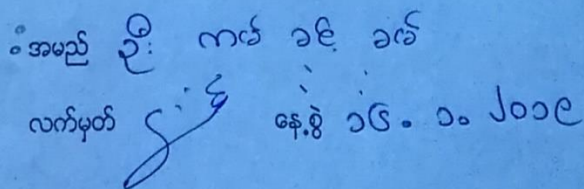 အမည် ဦး ကင် ခင့် ခင်
လက်မှတ် နေ့စွဲ ၁၆. ၁. ၂၀၁၉